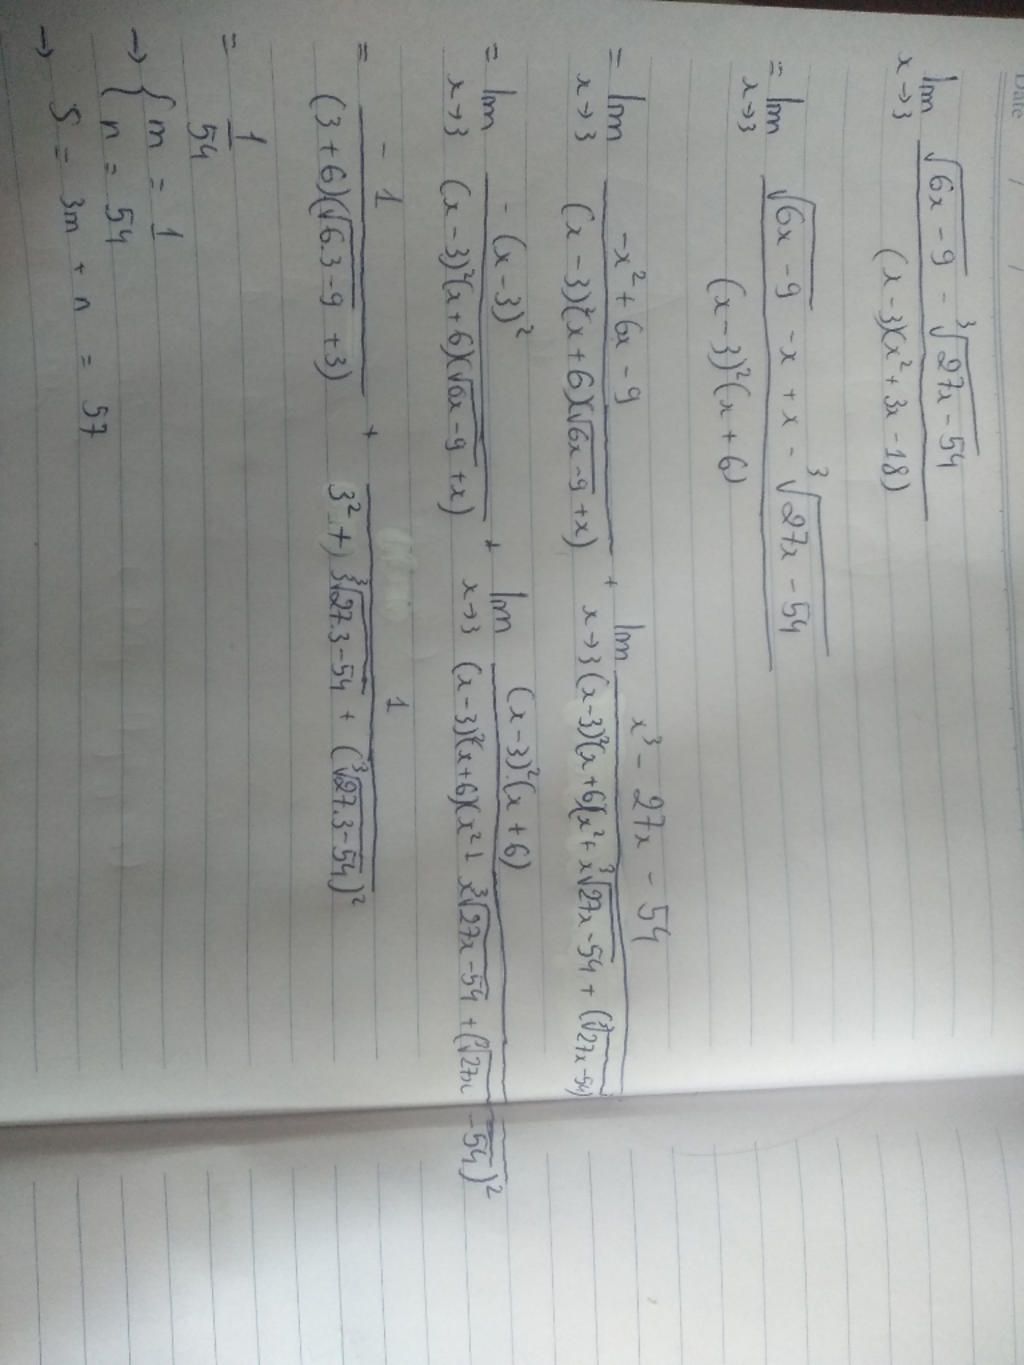 Date / /
lim x→3 (√(6x - 9) - ∛(27x - 54)) / ((x - 3)(x² + 3x - 18))
= lim x→3 (√(6x - 9) - x + x - ∛(27x - 54)) / ((x - 3)²(x + 6))
= lim x→3 (-x² + 6x - 9) / ((x - 3)²(x + 6)(√(6x - 9) + x)) + lim x→3 (x³ - 27x - 54) / ((x - 3)²(x + 6)(x² + x∛(27x - 54) + (∛(27x - 54))
= lim x→3 (-(x - 3)²) / ((x - 3)²(x + 6)(√(6x - 9) + x)) + lim x→3 ((x - 3)².(x + 6)) / ((x - 3)²(x + 6)(x² + x∛(27x - 54) + (∛(27x - 54))²
= (-1) / ((3 + 6)(√(6.3 - 9) + 3)) + 1 / (3² + 3∛(27.3 - 54) + (∛(27.3 - 54))²
= 1/54
→ { m = 1
{ n = 54
→ S = 3m + n = 57